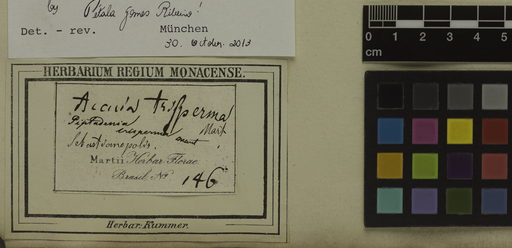 by Pétala Gomes Ribeiro!
Det. - rev. München
30. October. 2013
0 1 2 3 4 5
cm
HERBARIUM REGIUM MONACENSE.
Acacia trisperma
Mart
Piptadenia
trisperma
Sebastianopolis.
Martii Herbar. Florae
Brasil. No 146
Herbar. Kummer.